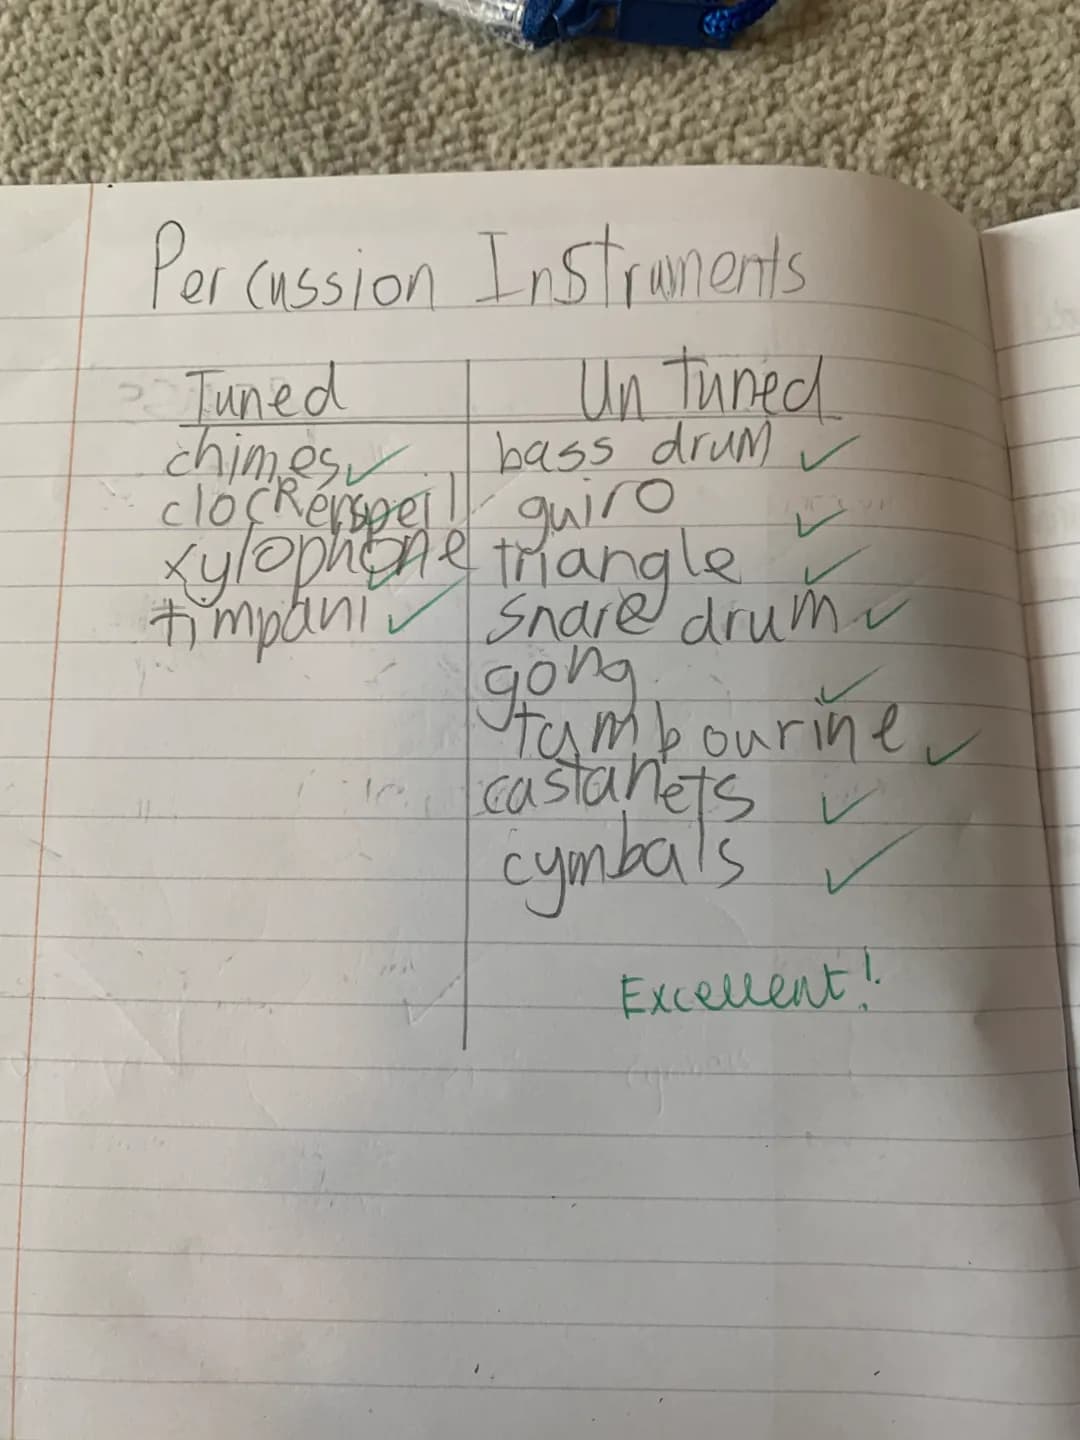 Percussion Instruments
Tuned
chimes
clockerspeil
xylophone
timpani
Un tuned
bass drum
guiro
triangle
snare drum
gong
tambourine
castanets
cymbals
Excellent!